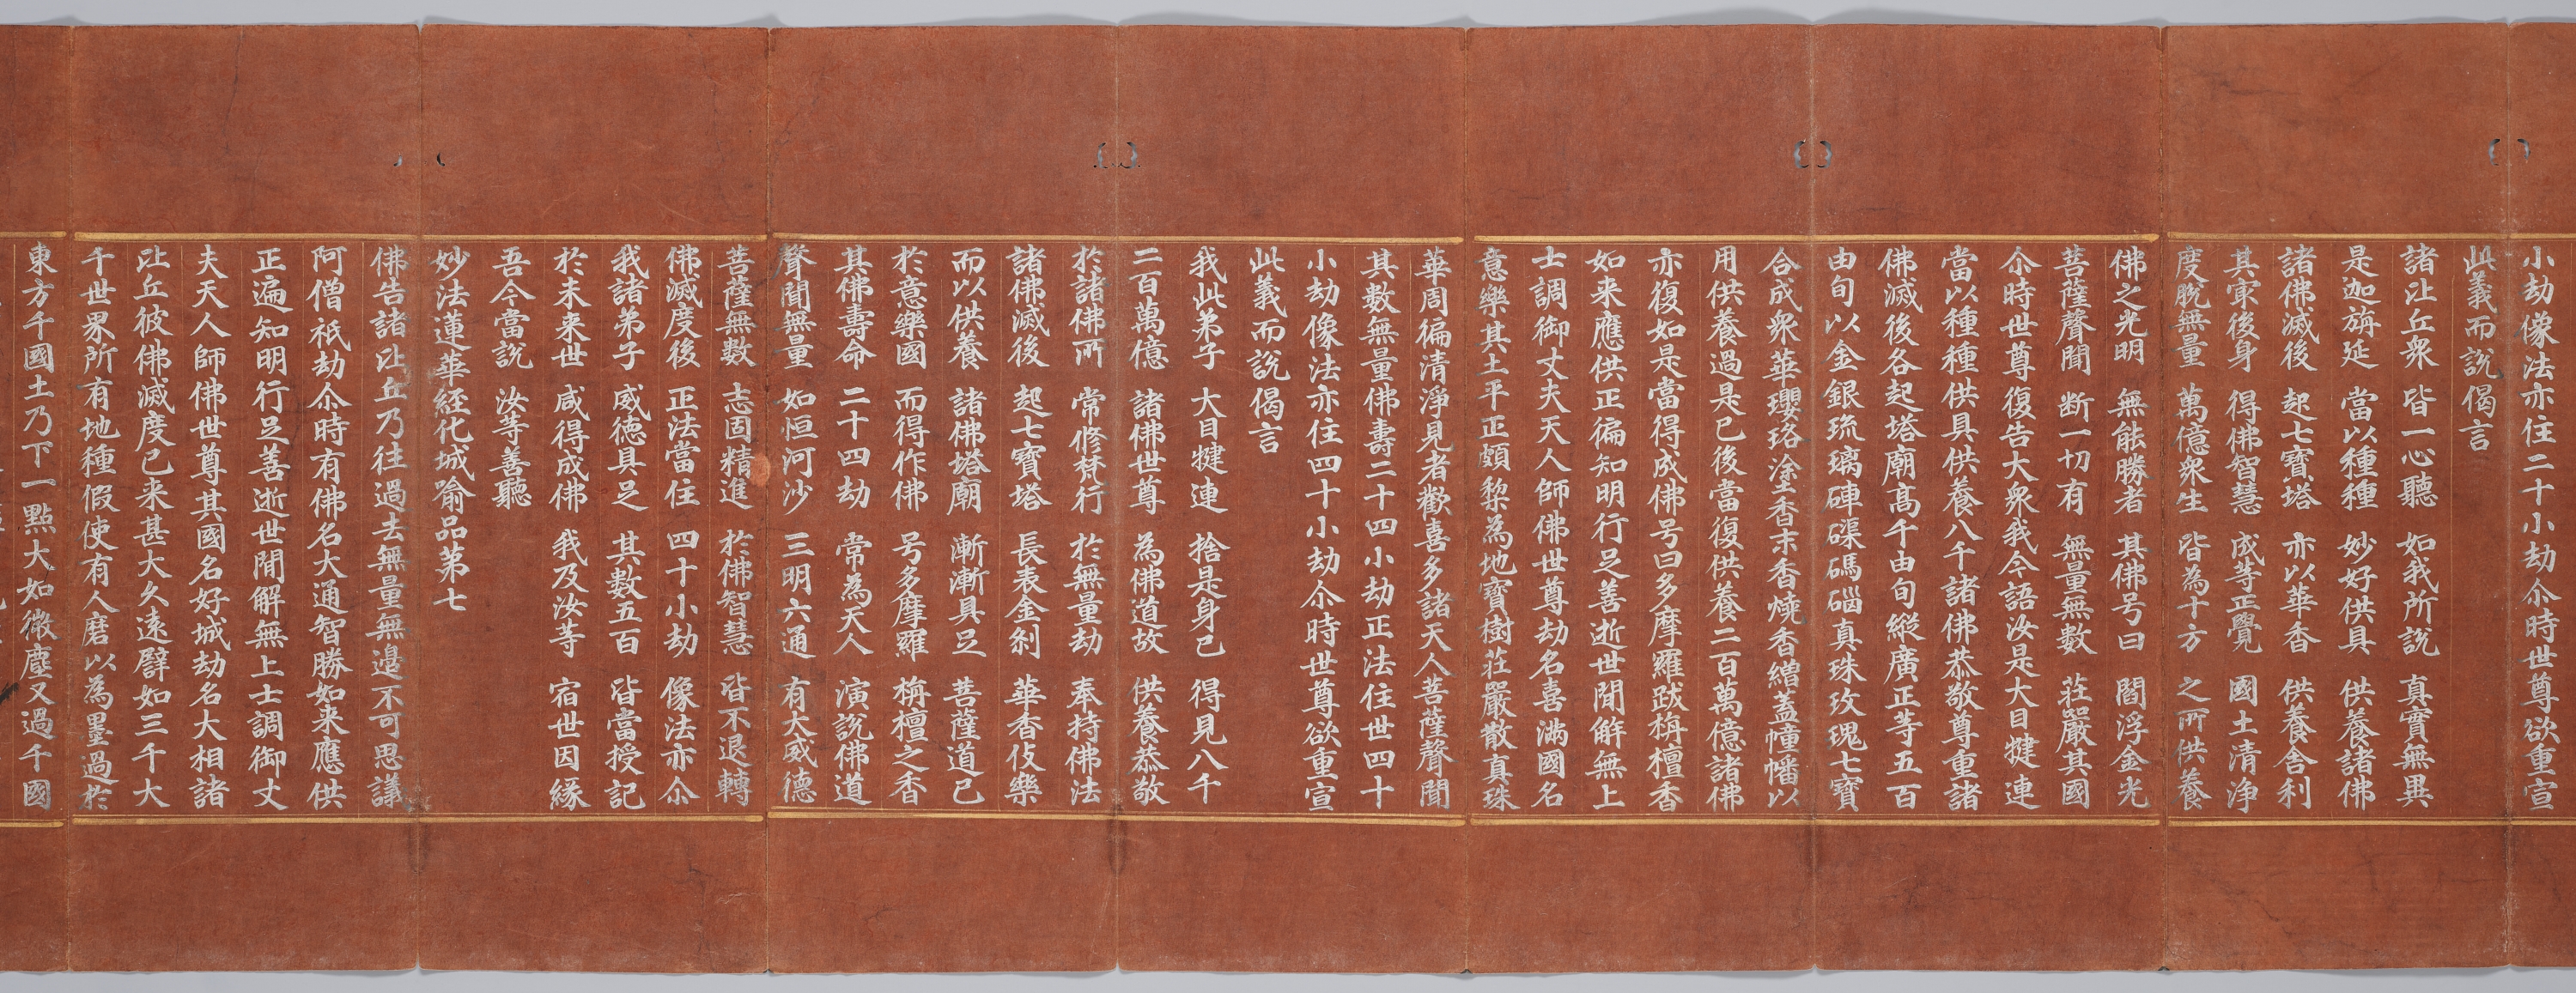 小劫像法亦住二十小劫尒時世尊欲重宣
此義而說偈言
諸比丘衆 皆一心聽 如我所說 真實無異
是迦旃延 當以種種 妙好供具 供養諸佛
諸佛滅後 起七寶塔 亦以華香 供養舍利
其宲後身 得佛智慧 成等正覺 國土清淨
度脫無量 萬億衆生 皆為十方 之所供養
佛之光明 無能勝者 其佛号曰 閻浮金光
菩薩聲聞 断一切有 無量無數 莊嚴其國
尒時世尊復告大衆我今語汝是大目犍連
當以種種供具供養八千諸佛恭敬尊重諸
佛滅後各起塔廟髙千由旬縱廣正等五百
由旬以金銀琉璃硨磲碼碯真珠玫瑰七寶
合成衆華瓔珞塗香末香燒香繒蓋幢幡以
用供養過是已後當復供養二百萬億諸佛
亦復如是當得成佛号曰多摩羅跋栴檀香
如来應供正徧知明行足善逝世間解無上
士調御丈夫天人師佛世尊劫名喜滿國名
意樂其土平正頗棃為地寶樹莊嚴散真珠
華周徧清淨見者歡喜多諸天人菩薩聲聞
其數無量佛壽二十四小劫正法住世四十
小劫像法亦住四十小劫尒時世尊欲重宣
此義而說偈言
我此弟子 大目犍連 捨是身已 得見八千
二百萬億 諸佛世尊 為佛道故 供養恭敬
於諸佛所 常修梵行 於無量劫 奉持佛法
諸佛滅後 起七寶塔 長表金刹 華香伎樂
而以供養 諸佛塔廟 漸漸具足 菩薩道已
於意樂國 而得作佛 号多摩羅 栴檀之香
其佛壽命 二十四劫 常為天人 演說佛道
聲聞無量 如恒河沙 三明六通 有大威德
菩薩無數 志固精進 於佛智慧 皆不退轉
佛滅度後 正法當住 四十小劫 像法亦尒
我諸弟子 威德具足 其數五百 皆當授記
於未来世 咸得成佛 我及汝等 宿世因緣
吾今當說 汝等善聽
妙法蓮華経化城喻品第七
佛告諸比丘乃往過去無量無邊不可思議
阿僧祇劫尒時有佛名大通智勝如来應供
正遍知明行足善逝世間解無上士調御丈
夫天人師佛世尊其國名好城劫名大相諸
比丘彼佛滅度已来甚大久遠譬如三千大
千世界所有地種假使有人磨以為墨過於
東方千國土乃下一點大如微塵又過千國